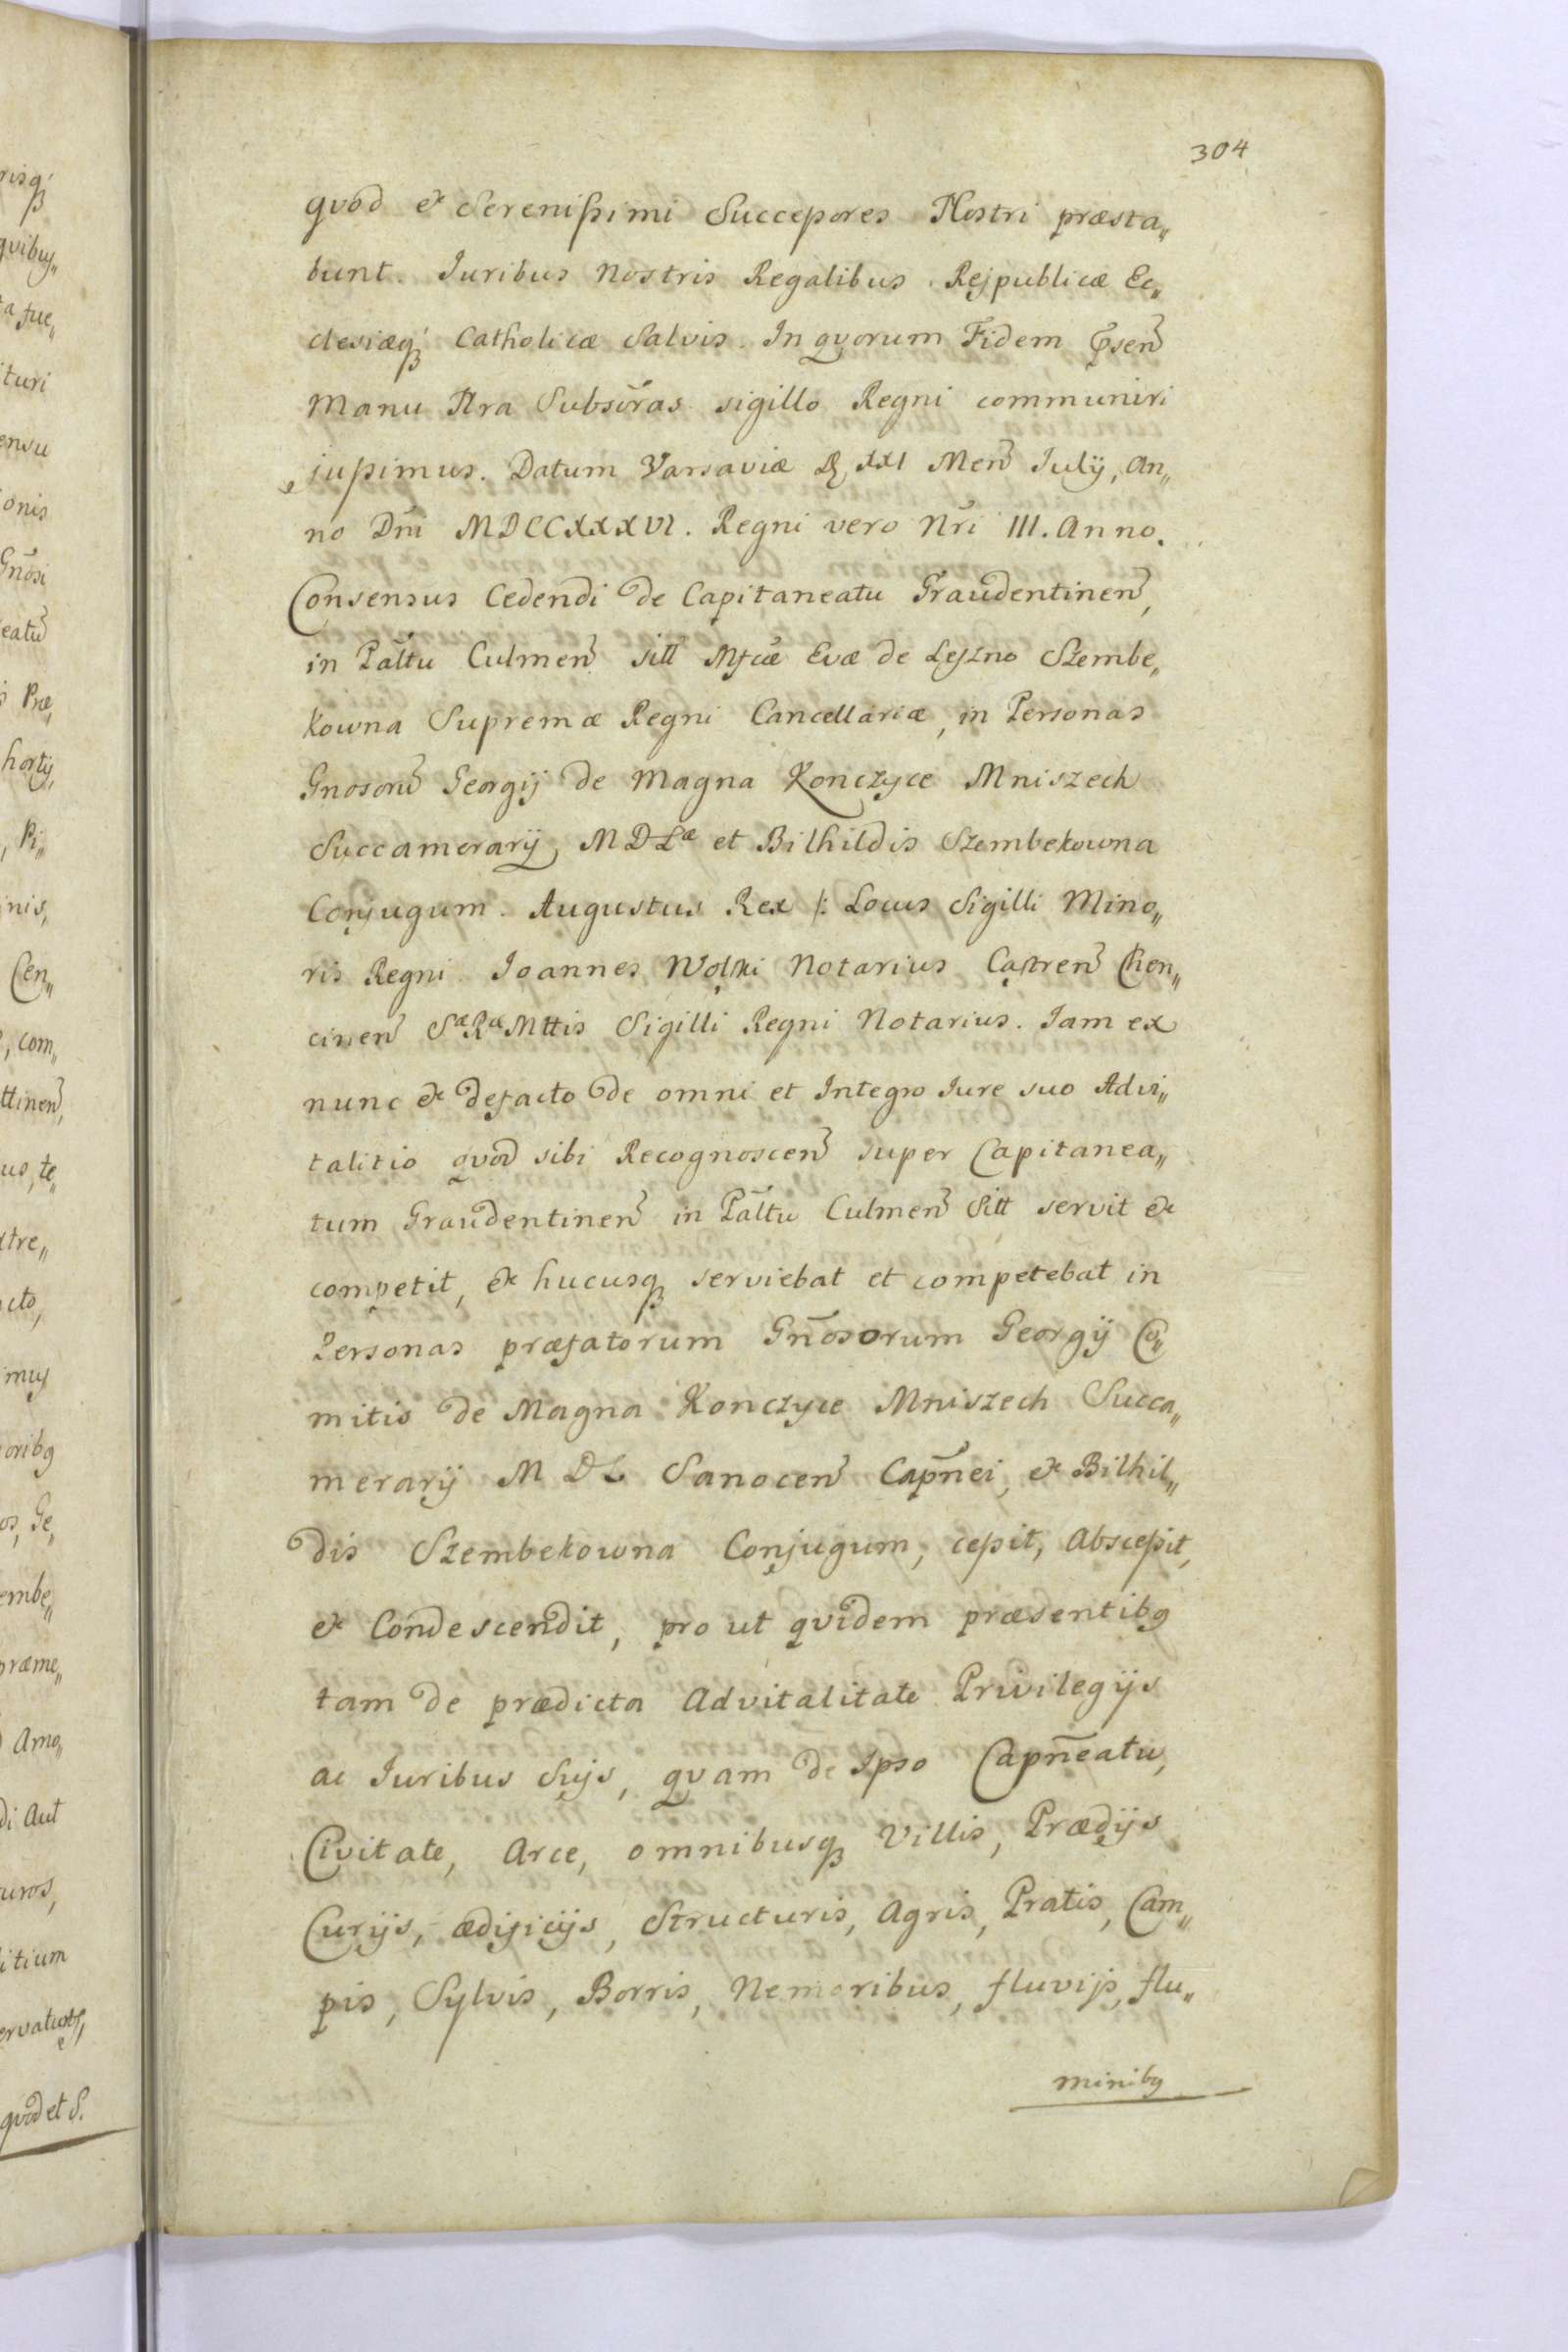 304
quod & Serenißimi Succeßores Nostri præsta„
bunt. Iuribus Nostris Regalibus Reipublicæ Ec„
clesiæq́ꝫ Catholicæ Salvis. In quorum Fidem p̄sen̄
Manu Nra Subscr̄as sigillo Regni communiri
jußimus. Datum Varsaviæ D. XXI Men̄ Iulij, An„
no Dn̄i MDCCXXXVI. Regni vero Nr̄i III. Anno.
Consensus Cedendi de Capitaneatu Graudentinen̄,
in Pal̄tu Culmen̄ sitt Mfcæ Evæ de Leszno Szembe„
kowna Supremæ Regni Cancellariæ, in Personas
Gnosorū Georgij de Magna Konczyce Mniszech
Succamerarij MDLæ et Bilhildis Szembekowna
Conjugum. Augustus Rex /: Locus Sigilli Mino„
ris Regni Ioannes Wolski Notarius Castren̄ Chen„
cinen̄ Sæ Ræ Mttis Sigilli Regni Notarius. Iam ex
nunc & defacto de omni et Integro Iure suo Advi„
talitio quod sibi Recognoscen̄ super Capitanea„
tum Graudentinen̄ in Pal̄tu Culmen̄ Sitt servit &
competit, & hucusqꝫ serviebat et competebat in
Personas præfatorum Gn̄osorum Georgij Co„
mitis de Magna Konczyce Mniszech Succa„
merarij M D L Sanocen̄ Capn̄ei, & Bilhil„
dis Szembekowna Conjugum, ceßit, Absceßit,
& Condescendit, pro ut quidem præsentibꝯ
tam de prædicta Advitalitate Privilegijs
ac Iuribus Suijs, quam de Ipso Capn̄eatu,
Civitate, Arce, omnibusqꝫ Villis, Prædijs
Curijs, ædificijs, Structuris, Agris, Pratis, Cam„
pis, Sylvis, Borris, Nemoribus, fluvijs, flu„
minibꝯ
risq́ꝫ
quibus„
ta fue„
ituri
ensu
onis
Gn̄osi
eatū
Præ„
hortij,
, Pi„
inis,
Cen„
, com„
ttinen̄,
us, te„
xtre„
cto,
imus
oribꝯ
os, Ge„
embe„
præme„
Amo„
di Aut
uros,
litium
quod et S.